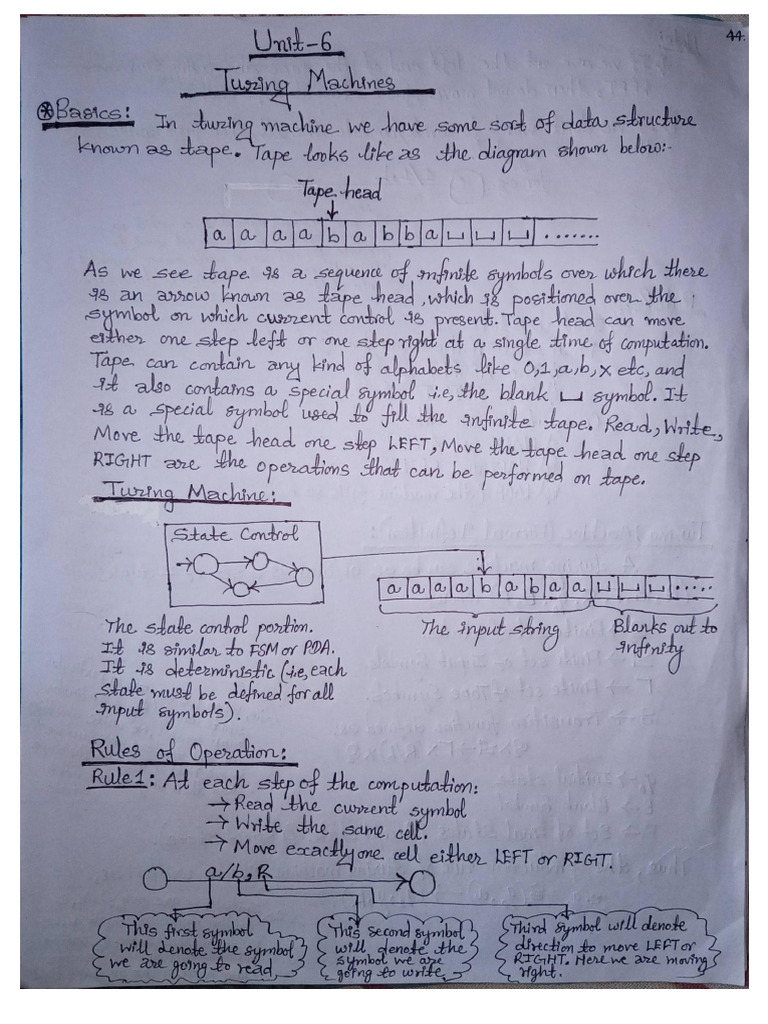 44.
Unit-6
Turing Machines
⊛Basics: In turing machine we have some sort of data structure
known as tape. Tape looks like as the diagram shown below:-
Tape head
a a a a b a b b a ⊔ ⊔ ⊔ .......
As we see tape is a sequence of infinite symbols over which there
is an arrow known as tape head, which is positioned over the
symbol on which current control is present. Tape head can move
either one step left or one step right at a single time of computation.
Tape can contain any kind of alphabets like 0,1,a,b,x etc, and
it also contains a special symbol i.e, the blank ⊔ symbol. It
is a special symbol used to fill the infinite tape. Read, Write,
Move the tape head one step LEFT, Move the tape head one step
RIGHT are the operations that can be performed on tape.
Turing Machine:
State Control
a a a a b a b a a ⊔ ⊔ ⊔ .....
The state control portion.
It is similar to FSM or PDA.
It is deterministic (i.e, each
state must be defined for all
input symbols).
The input string
Blanks out to
infinity
Rules of Operation:
Rule1: At each step of the computation:
→ Read the current symbol
→ Write the same cell.
→ Move exactly one cell either LEFT or RIGHT.
a/b, R
This first symbol
will denote the symbol
we are going to read
This second symbol
will denote the
symbol we are
going to write
Third symbol will denote
direction to move LEFT or
RIGHT. Here we are moving
right.